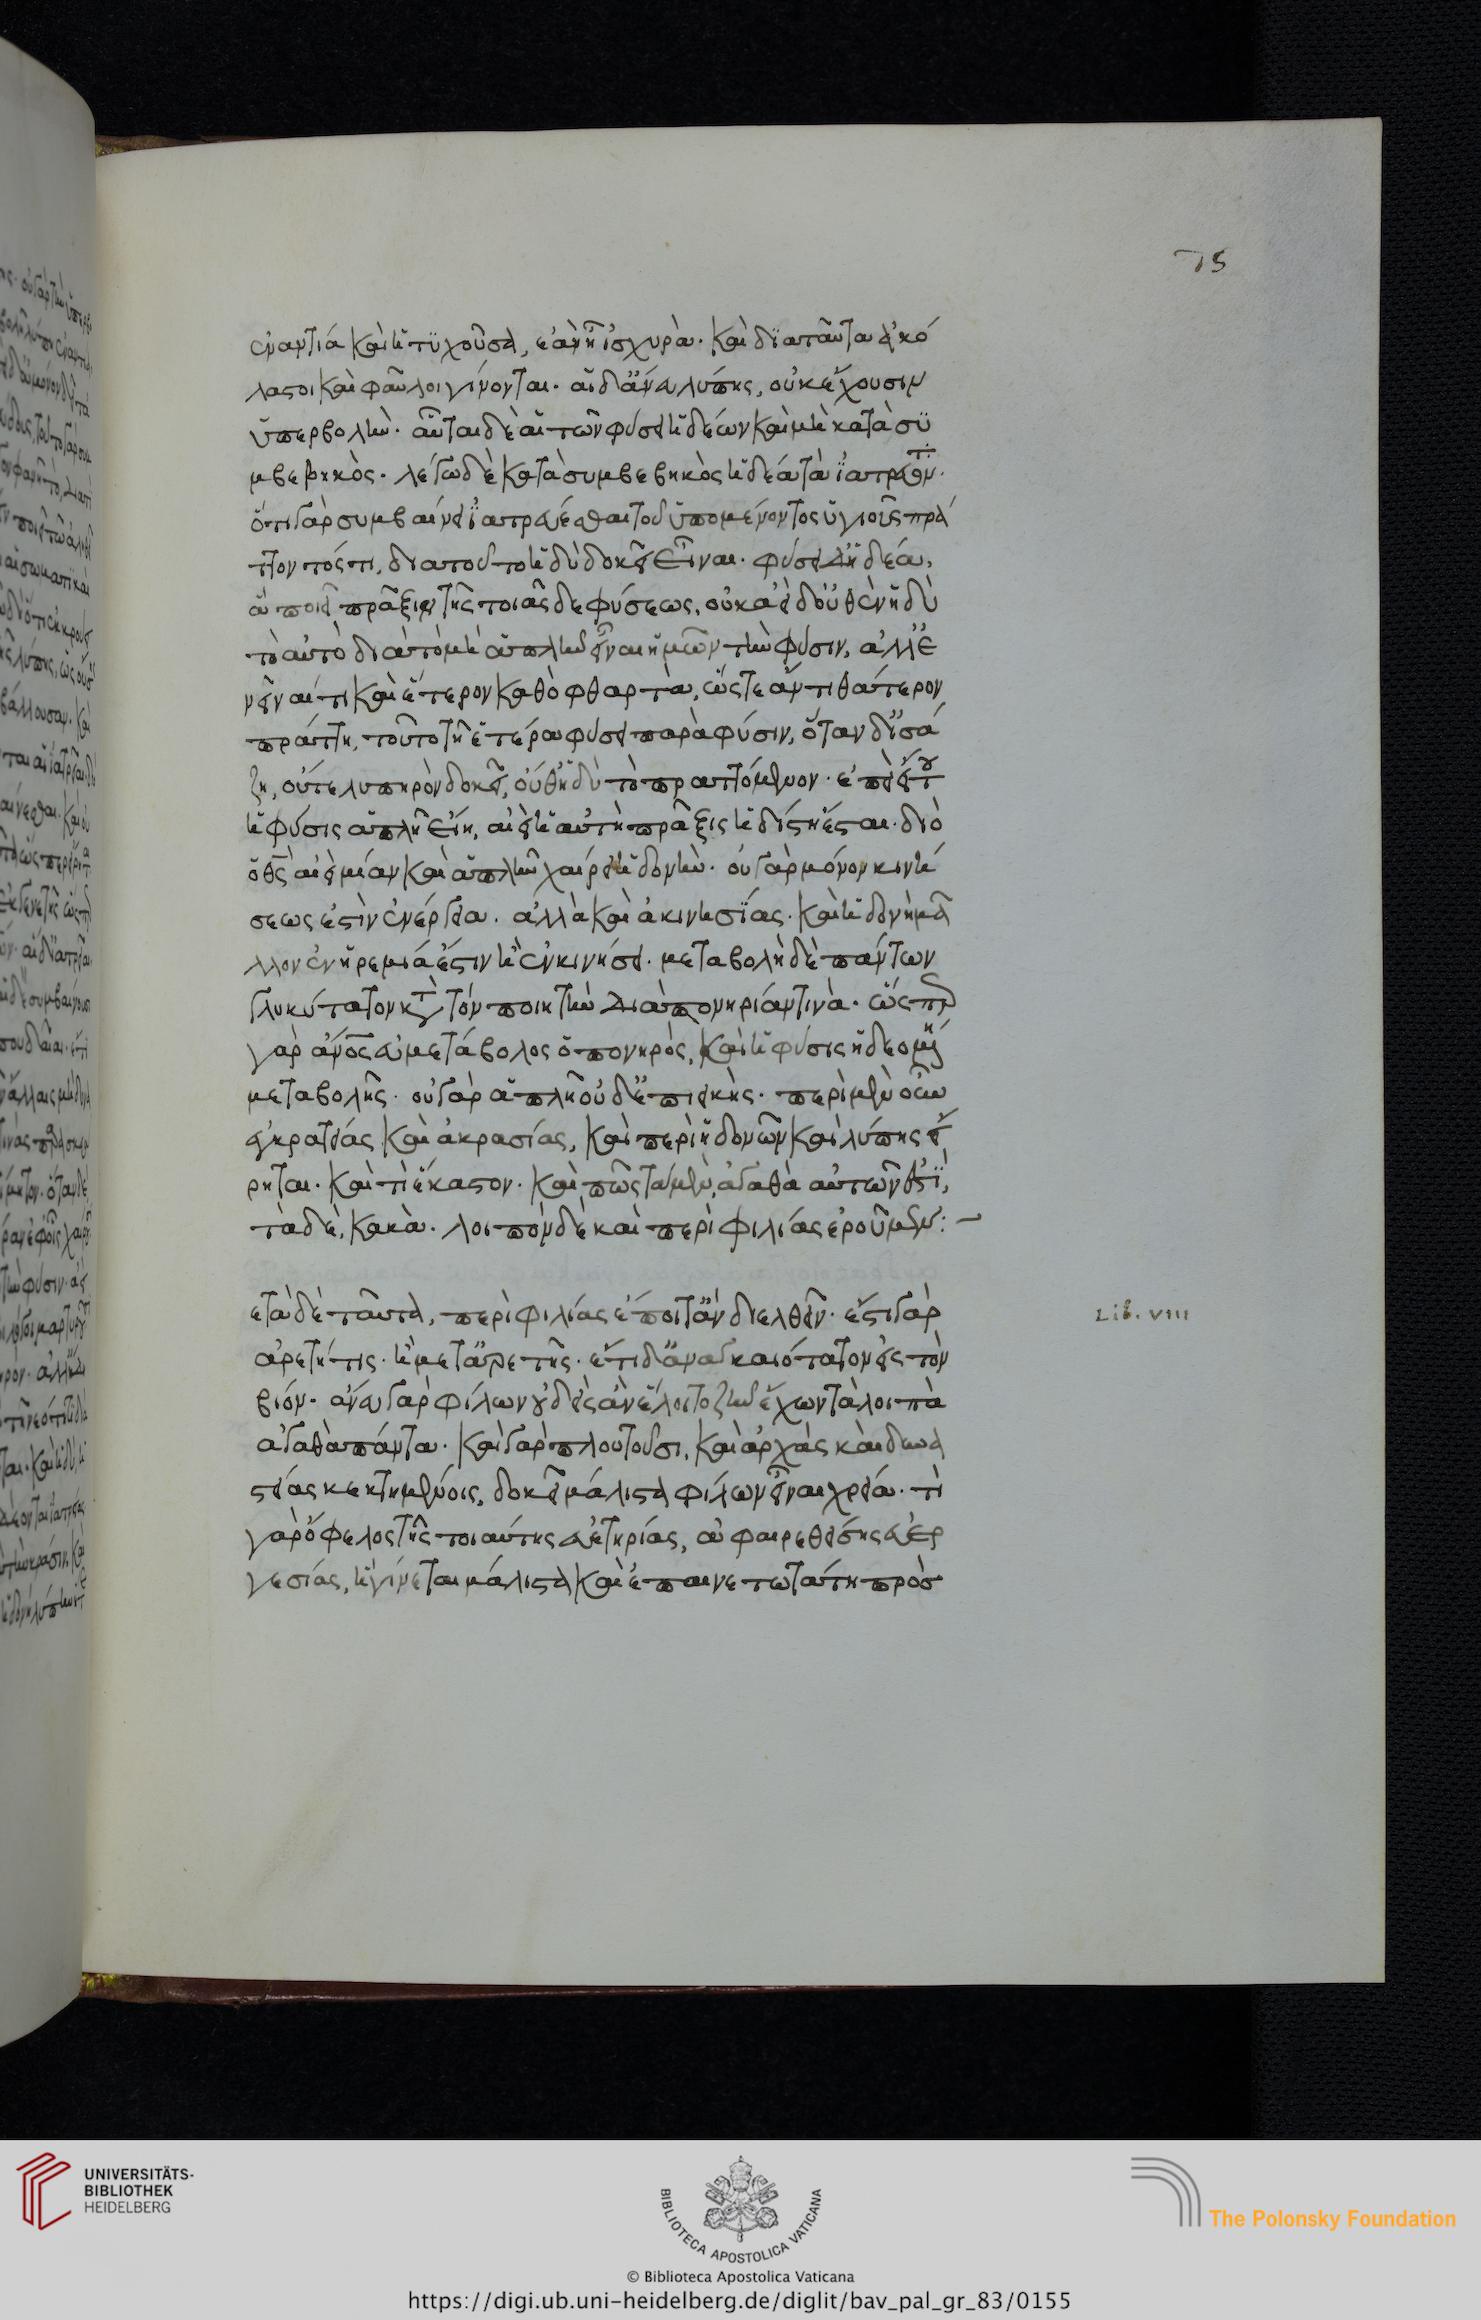 75
ἐναντία καὶ ἡ τυχοῦσα, ἐὰν ᾖ ἰσχυρὰ· καὶ διαταῦτα ἀκό
λαστοι καὶ φαῦλοι γίνονται· αἱ δ' ἄνευ λύπης, οὐκ ἔχουσιν
ὑπερβολὴν· αὗται δὲ αἱ τῶν φύσει ἡδέων καὶ μὴ κατὰ συ
μβεβηκὸς· λέγω δὲ κατὰ συμβεβηκὸς ἡδέα τὰ ἰατρεύοντ·
ὅτι γὰρ συμβαίνει ἰατρεύεσθαι τοῦ ὑπομένοντος ὑγιοῦς πρά
ττοντός τι, διατοῦτο ἡδὺ δοκεῖ εἶναι· φύσει δ' ἡδέα,
ἃ ποιεῖ πρᾶξιν τῆς τοιᾶς δε φύσεως, οὐκ ἀεὶ δ' οὐθὲν ἡδὺ
τὸ αὐτὸ διὰ τὸ μὴ ἁπλῆν εἶναι ἡμῶν τὴν φύσιν, ἀλλ' ἐ
νεῖναί τι καὶ ἕτερον καθὸ φθαρτὰ, ὥστε ἄν τι θάτερον
πράττῃ, τοῦτο τῇ ἑτέρα φύσει παρὰ φύσιν, ὅταν δ' ἰσά
ζῃ, οὔτε λυπηρὸν δοκεῖ, οὔθ' ἡδὺ τὸ πραττόμενον· ἐπεὶ εἴ του
ἡ φύσις ἁπλῆ εἴη, ἀεὶ ἡ αὐτὴ πρᾶξις ἡδίστη ἔσται· διὸ
ὁ θς ἀεὶ μίαν καὶ ἁπλῆν χαίρει ἡδονὴν· οὐ γὰρ μόνον κινή
σεως ἐστὶν ἐνέργεια· ἀλλὰ καὶ ἀκινησίας· καὶ ἡδονὴ μᾶ
λλον ἐν ἠρεμίᾳ ἐστιν ἢ ἐν κινήσει· μεταβολὴ δὲ πάντων
γλυκύτατον κτ τὸν ποιητὴν διὰ πονηρίαν τινὰ· ὥσπερ
γὰρ ἄνος εὐμετάβολος ὁ πονηρὸς, καὶ ἡ φύσις ἡ δεομένη
μεταβολῆς· οὐ γὰρ ἁπλῆ οὐδ' ἐπιεικὴς· περὶ μὲν οὖν
ἐγκρατείας καὶ ἀκρασίας, καὶ περὶ ἡδονῶν καὶ λύπης εἴ
ρηται· καὶ τί ἕκαστον· καὶ πῶς τὰ μὲν ἀγαθὰ αὐτῶν ἐστὶ,
τὰ δὲ, κακὰ· λοιπὸν δὲ καὶ περὶ φιλίας ἐροῦμεν:
ετὰ δὲ ταῦτα, περὶ φιλίας ἕποιτ' ἂν διελθεῖν· ἔστι γὰρ
ἀρετή τις· ἢ μετ' ἀρετῆς· ἔτι δ' ἀναγκαιότατον εἰς τὸν
βίον· ἄνευ γὰρ φίλων οὐδεὶς ἂν ἕλοιτο ζῆν ἔχων τὰ λοιπὰ
ἀγαθὰ πάντα· καὶ γὰρ πλουτοῦσι, καὶ ἀρχὰς καὶ δυνα
στείας κεκτημένοις, δοκεῖ μάλιστα φίλων εἶναι χρεία· τί
γὰρ ὄφελος τῆς τοιαύτης εὐετηρίας, ἀφαιρεθείσης εὐερ
γεσίας, ἣ γίνεται μάλιστα καὶ ἐπαινετωτάτη πρὸς
Lib. VIII
UNIVERSITÄTS-
BIBLIOTHEK
HEIDELBERG
BIBLIOTECA APOSTOLICA VATICANA
© Biblioteca Apostolica Vaticana
The Polonsky Foundation
https://digi.ub.uni-heidelberg.de/diglit/bav_pal_gr_83/0155